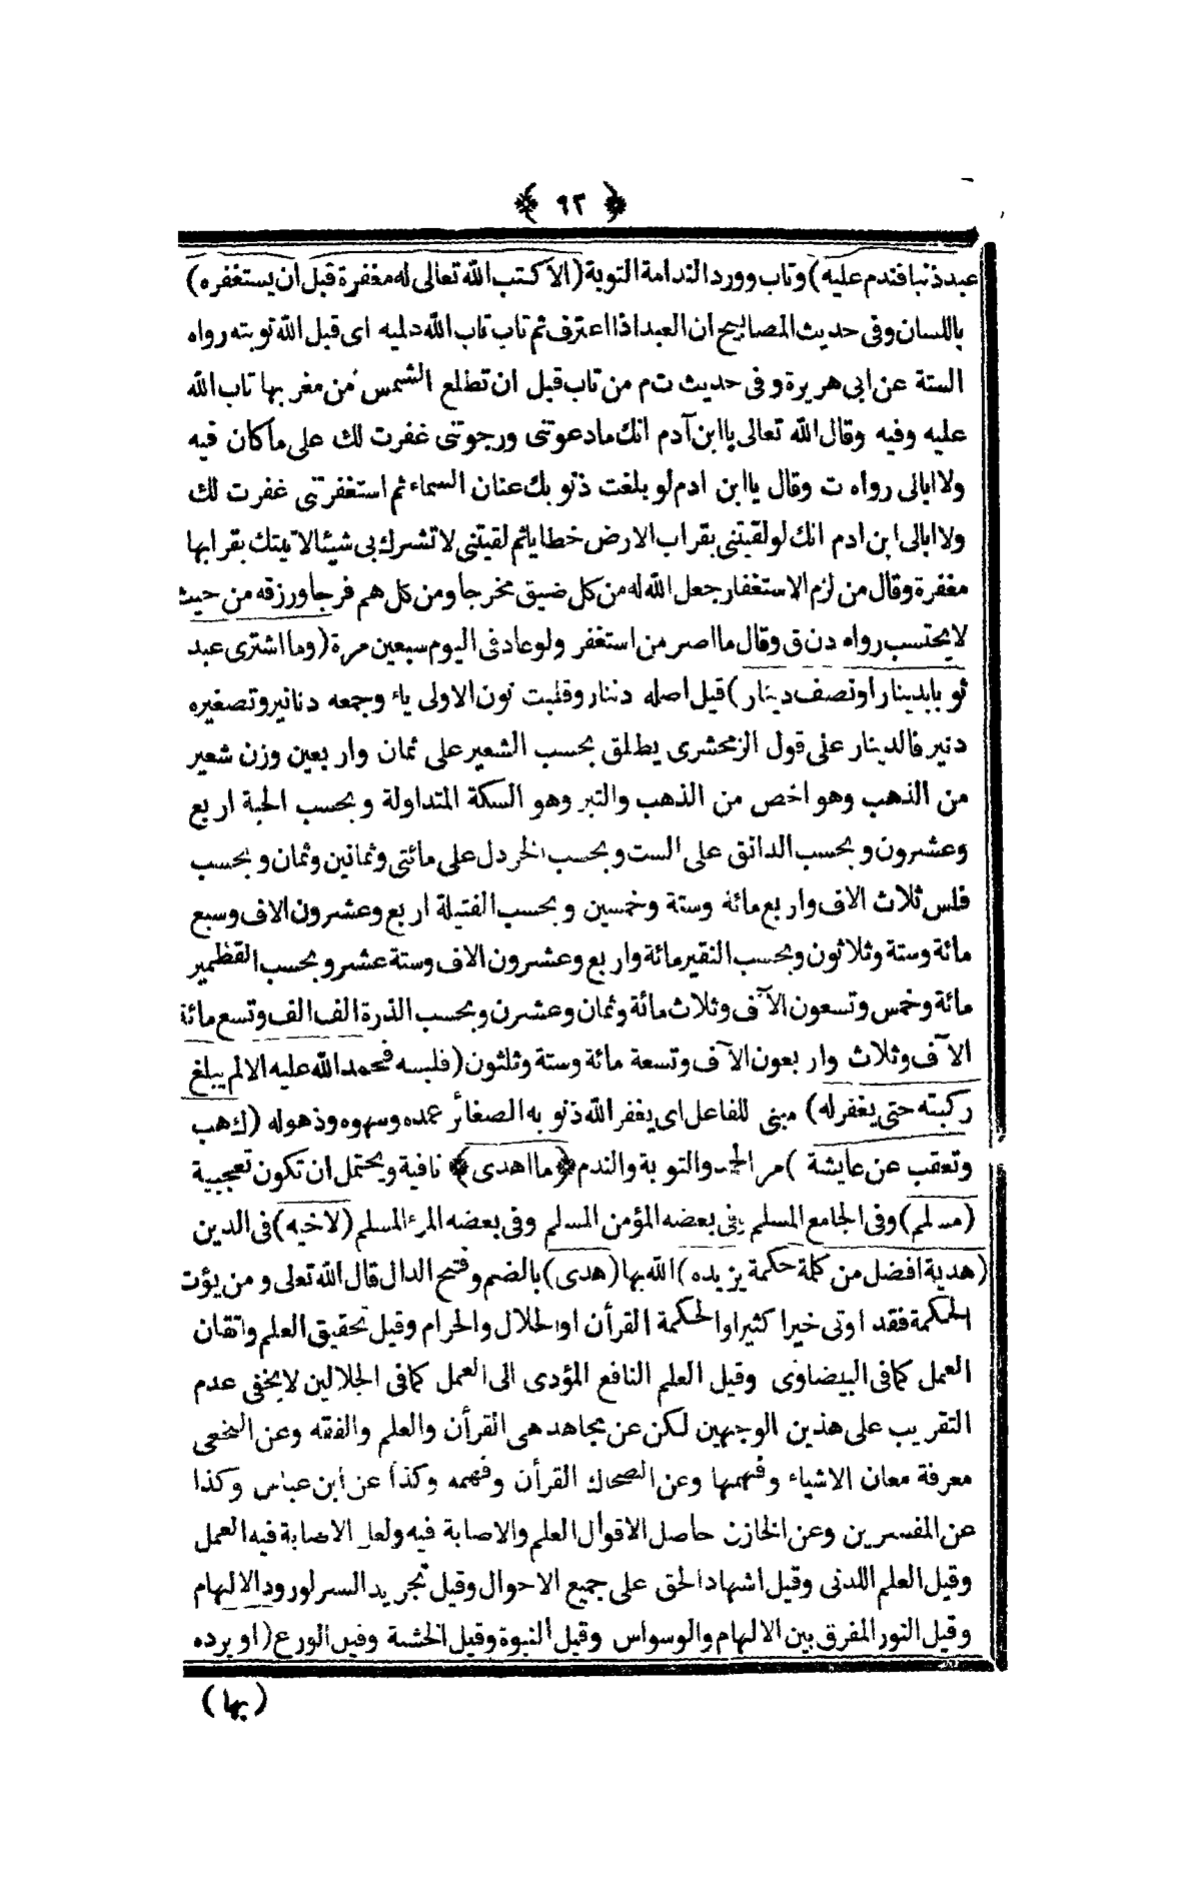 ﴿ ٩٢ ﴾
عبد ذنبا فندم عليه) وتاب وورد الندامة التوبة (الا كتب الله تعالى له مغفرة قبل ان يستغفره)
باللسان وفى حديث المصابيح ان العبد اذا اعترف ثم تاب تاب الله عليه اى قبل الله توبته رواه
الستة عن ابى هريرة وفى حديث تم من تاب قبل ان تطلع الشمس من مغربها تاب الله
عليه وفيه وقال الله تعالى يا ابن آدم انك مادعوتنى ورجوتنى غفرت لك على ما كان فيه
ولا ابالى رواه ت وقال يا ابن ادم لو بلغت ذنوبك عنان السماء ثم استغفرتنى غفرت لك
ولا ابالى ابن ادم انك لو لقيتنى بقراب الارض خطايا ثم لقيتنى لا تشرك بى شيئا لاتيتك بقرابها
مغفرة وقال من لزم الاستغفار جعل الله له من كل ضيق مخرجا ومن كل هم فرجا ورزقه من حيث
لا يحتسب رواه دن ق وقال ما اصر من استغفر ولو عاد فى اليوم سبعين مرة (وما اشترى عبد
ثوبا بدينار او نصف دينار) قيل اصله دننار وقلبت نون الاولى ياء وجمعه دنانير وتصغيره
دنير فالدينار على قول الزمخشرى يطلق بحسب الشعير على ثمان واربعين وزن شعير
من الذهب وهو اخص من الذهب والتبر وهو السكة المتداولة وبحسب الحبة اربع
وعشرون وبحسب الدانق على الست وبحسب الخردل على مائتى وثمانين وثمان وبحسب
فلس ثلاث الاف واربع مائة وستة وخمسين وبحسب الفتيلة اربع وعشرون الاف وسبع
مائة وستة وثلاثون وبحسب النقير مائة واربع وعشرون الاف وستة عشر وبحسب القطمير
مائة وخمس وتسعون الآف وثلاث مائة وثمان وعشرن وبحسب الذرة الف الف وتسع مائة
الآف وثلاث واربعون الآف وتسعة مائة وستة وثلثون (فلبسه فحمد الله عليه الا لم يبلغ
ركبته حتى يغفر له) مبنى للفاعل اى يغفر الله ذنوبه الصغائر عمده وسهوه وذهوله (ك هب
وتعقب عن عايشة) مر الحمد والتوبة والندم ﴿ما اهدى﴾ نافية ويحتمل ان تكون تعجبية
(مسلم) وفى الجامع المسلم فى بعضه المؤمن المسلم وفى بعضه المرء المسلم (لاخيه) فى الدين
(هدية افضل من كلمة حكمة يزيده) الله بها (هدى) بالضم وفتح الدال قال الله تعلى ومن يؤت
الحكمة فقد اوتى خيرا كثيرا والحكمة القرأن او الحلال والحرام وقيل تحقيق العلم واتقان
العمل كما فى البيضاوى وقيل العلم النافع المؤدى الى العمل كما فى الجلالين لا يخفى عدم
التقريب على هذين الوجهين لكن عن مجاهد هى القرأن والعلم والفقه وعن النخعى
معرفة معان الاشياء وفهمها وعن الضحاك القرأن وفهمه وكذا عن ابن عباس وكذا
عن المفسرين وعن الخازن حاصل الاقوال العلم والاصابة فيه ولعل الاصابة فيه العمل
وقيل العلم اللدنى وقيل اشهاد الحق على جميع الاحوال وقيل تجريد السر لورود الالهام
وقيل النور المفرق بين الالهام والوسواس وقيل النبوة وقيل الخشية وقيل الورع (او يرده
(بها)